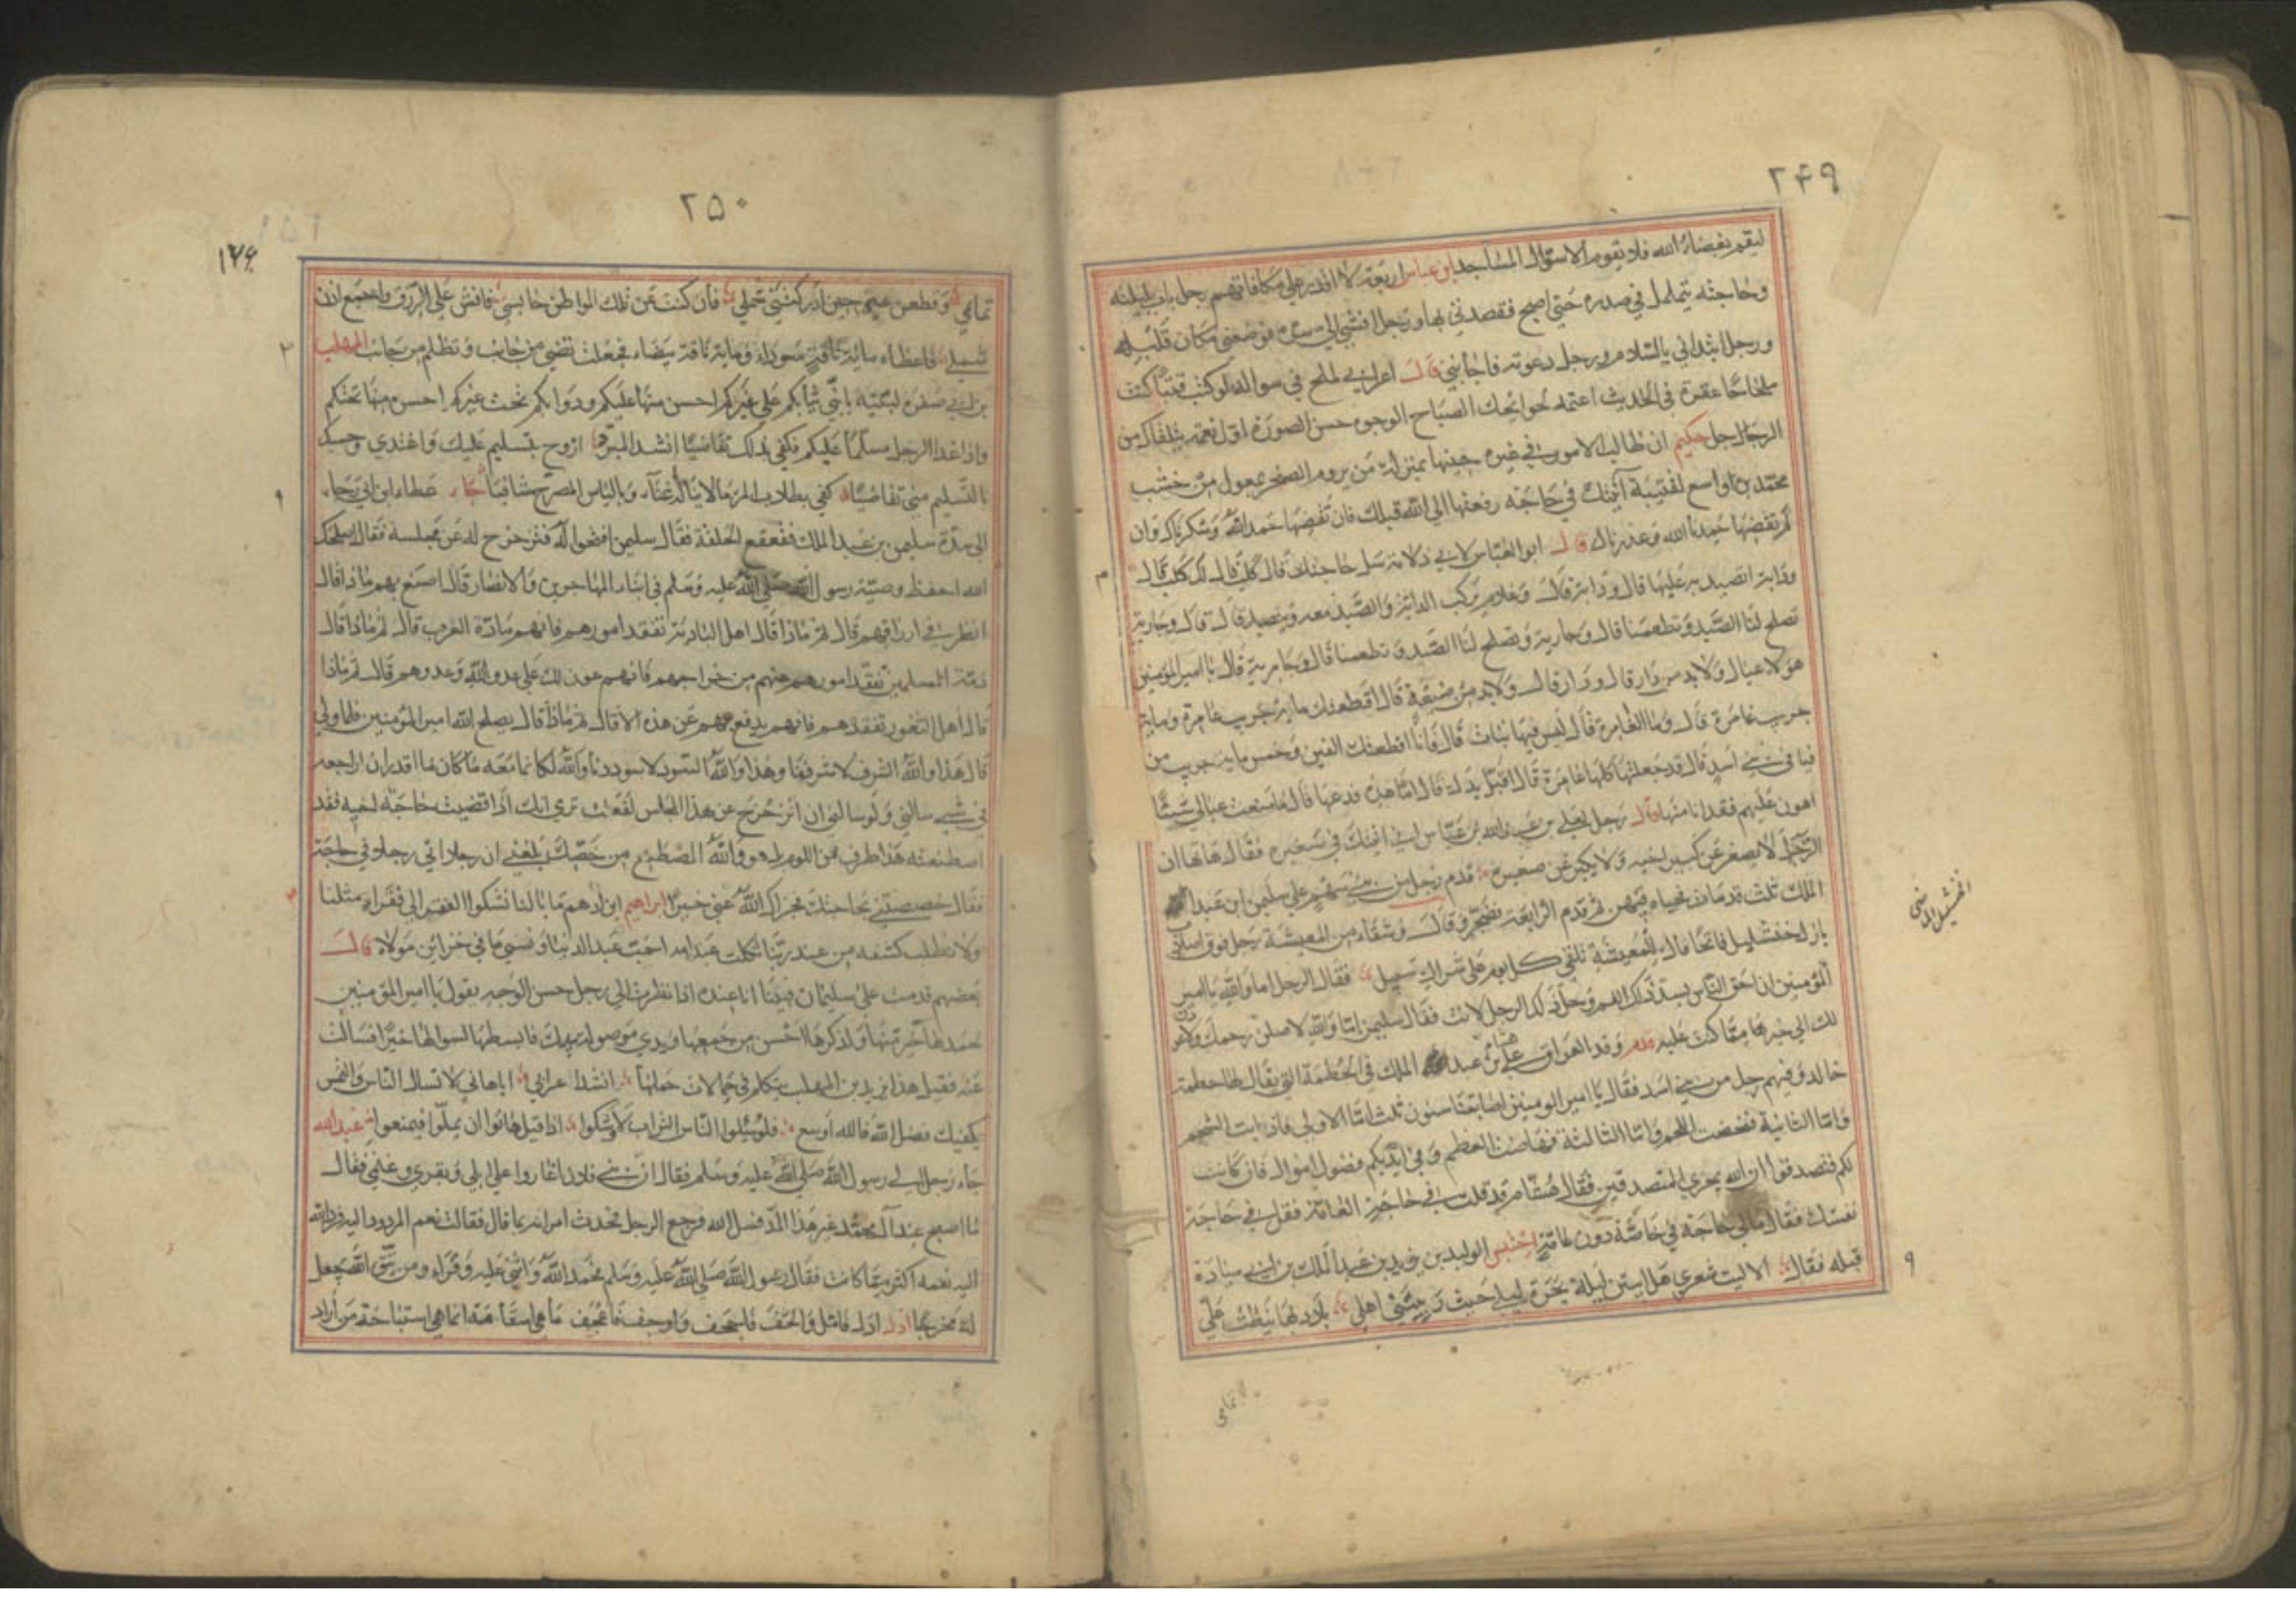 ٢۴٩
ليقم بغضاء الله فلا يقوم الا سؤال المساجد ابن عباس اربعة لا اقدر على مكافاتهم رجل بات ليلته
وحاجته يتململ في صدره حتى اصبح فقصدني بها ورجل افشى الي سره فوضعني مكان قلبه
ورجل ابتداني بالسلام ورجل دعوته فاجابني قال اعرابي لملح في سواله لو كنت
في الحديث اعتمد لحوائجك الصباح الوجوه حسن الصورة اول نعمة يتلقاك من
الرجال رجل حكيم ان طالب الامور في غير حينها بمنزلة من يروم الصخر بمعول من خشب
محمد بن واسع لقتيبة آتيتك في حاجة رفعتها الى الله قبلك فان تقضها حمد الله وشكرناك وان
لم تقضها حمدنا الله وعذرناك قال ابو العباس لابي دلامة سل حاجتك قال كلب قال لك كلب قال
ودابة اتصيد عليها قال ودابة قال وغلام يركب الدابة والصيد معه ويتصيد قال وجارية
تصلح لنا الصيد وتطعمنا قال وجارية وتصلح لنا الصيد وتطعمنا قال وجارية قال يا امير المؤمنين
هولاء عيال ولابد من دار قال ودار قال ولابد من ضيعة قال اقطعتك ماية جريب عامرة وماية
جريب غامرة قال وما الغامرة قال ليس فيها نبات قال فانا اقطعتك الفين وخمس ماية جريب من
فيافي بني اسد قال قد جعلتها كلها عامرة قال اقبل يدك قال اما هذه فدعها قال ما منعت عيالي شيئا
اهون عليهم فقدانا منها قال رجل لعلي بن عبد الله بن عباس اني اتيتك في صغيره فقال هاتها ان
الرجل لا يصغر عن كبير اخيه ولا يكبر عن صغيره قدم رجل من بني سهم على سليمن ابن عبد
الملك ثلث قدمات فحياه فيهن ثم قدم الرابعة فتفجر وقال وشقاء من المعيشة رجل فوق اصلتي
بازل خفشليل فاتحا فاك للمعيشة تلقى كل يوم على شراك سبيل فقال الرجل اما والله يا امير
المؤمنين ان احق الناس بسد ذلك الفم وحل ذلك الرجل لانت فقال سليمن اما والله لاصلن رحمك ولاعودن
لك الى خير مما كنت عليه قدم وفد العراق على هشام بن عبد الملك في الحطمة التي يقال لها حطمة
خالد وفيهم رجل من بني اسد فقال يا امير المومنين اصابتنا سنون ثلث اما الاولى فاذابت الشحم
واما الثانية فنحضت اللحم واما الثالثة فهاضت العظم وفي ايديكم فضول اموال فان كانت
لكم فتصدقوا ان الله يجزي المتصدقين فقال هشام قد قلت في حاجة العامة فقل في حاجة
نفسك فقال مالي حاجة في خاصة دون عامة احتبس الوليد بن يزيد بن عبد الملك بن ابي ميادة
قبله فقال الا ليت شعري هل ابيتن ليلة بحرة ليلى حيث ربتني اهلي بلاد بها نيطت علي
تمايمي
٢٥٠
تمايمي وقطعن عني حين ادركني عقلي فان كنت عن تلك المواطن حابسي فافش علي الرزق واجمع اذن
شملي فاعطاه ماية ناقة سوداء وماية ناقة بيضاء فجعلت تضيء من جانب وتظلم من جانب المهلب
بن ابي صفرة لبنيه يا بني ثيابكم على غيركم احسن منها عليكم ودوابكم تحت غيركم احسن منها تحتكم
واذا غدا الرجل مسلما عليكم فكفى بذلك تقاضيا انشد المبرد اروح بتسليم عليك واغتدي وحسبك
بالتسليم مني تقاضيا كفى بطلاب المرء ما لا يناله عناء وبالياس المصرح شافيا جاء عطاء ابن ابي رجاء
الى سدة سليمن بن عبد الملك فقعقع الحلقة فقال سليمن افتحوا له فتزحزح له عن مجلسه فقال اصلحك
الله احفظ وصية رسول الله صلي الله عليه وسلم في ابناء المهاجرين والانصار قال اصنع بهم ماذا قال
انظر في ارزاقهم قال ثم ماذا قال اهل البادية تفقد امورهم فانهم مادة العرب قال ثم ماذا قال
ذمة المسلمين تفقد امورهم من خراجهم فانهم عون لك على عدو الله وعدوهم قال ثم ماذا
قال اهل الثغور تفقدهم فانهم يدفع بهم عن هذه الامة قال ثم ماذا قال يصلح الله امير المؤمنين فلما ولى
قال هذا والله الشرف لا شرفنا وهذا والله السودد لا سوددنا والله لكانما معه ما كان مما اقدر ان اراجعه
في شيء سالني ولو سالني ان اتزحزح عن هذا المجلس لفعلت ترى انك اذا قضيت حاجة لخيه فقد
اصطنعته هذا طرف من اللوم بل هو والله المصطنع من خصك بلغني ان رجلا اتى رجلا في حاجة
فقال خصصتني بحاجتك فجزاك الله عني خيرا ابراهيم ابن ادهم ما بالنا نشكوا الفقر الى فقراء مثلنا
ولا نطلب كشفه من عند ربنا ثكلت عبدا امه احب عبد الدنيا ونسي ما في خزاين مولاه قال
بعضهم قدمت على سليمان فبينا انا عنده اذا نظرت الى رجل حسن الوجه يقول يا امير المؤمنين
لحمدها خير منها ولذكرها احسن من جمعها ويدي موصولة بيدك فابسطها لسوالها خيرا فسالت
عنه فقيل هذا يزيد بن المهلب يتكلم في حمالات حملها انشد اعرابي اباهاني لا تسال الناس والتمس
بكفيك فضل الله فالله اوسع فلو سئلوا الناس التراب لاوشكوا اذا قيل هاتوا ان يملوا فيمنعوا عبد الله
جاء رجل الى رسول الله صلي الله عليه وسلم فقال ان بني فلان اغاروا على ابلي وبقري وغنمي فقال
ما اصبح عند آل محمد غير هذا المد فسل الله فرجع الرجل فحدث امراته بما قال فقالت نعم المردود اليه فرد الله
اليه نعمه اكثر مما كانت فقال رسول الله صلي الله عليه وسلم فحمد الله واثنى عليه وقراء ومن يتق الله يجعل
له مخرجا